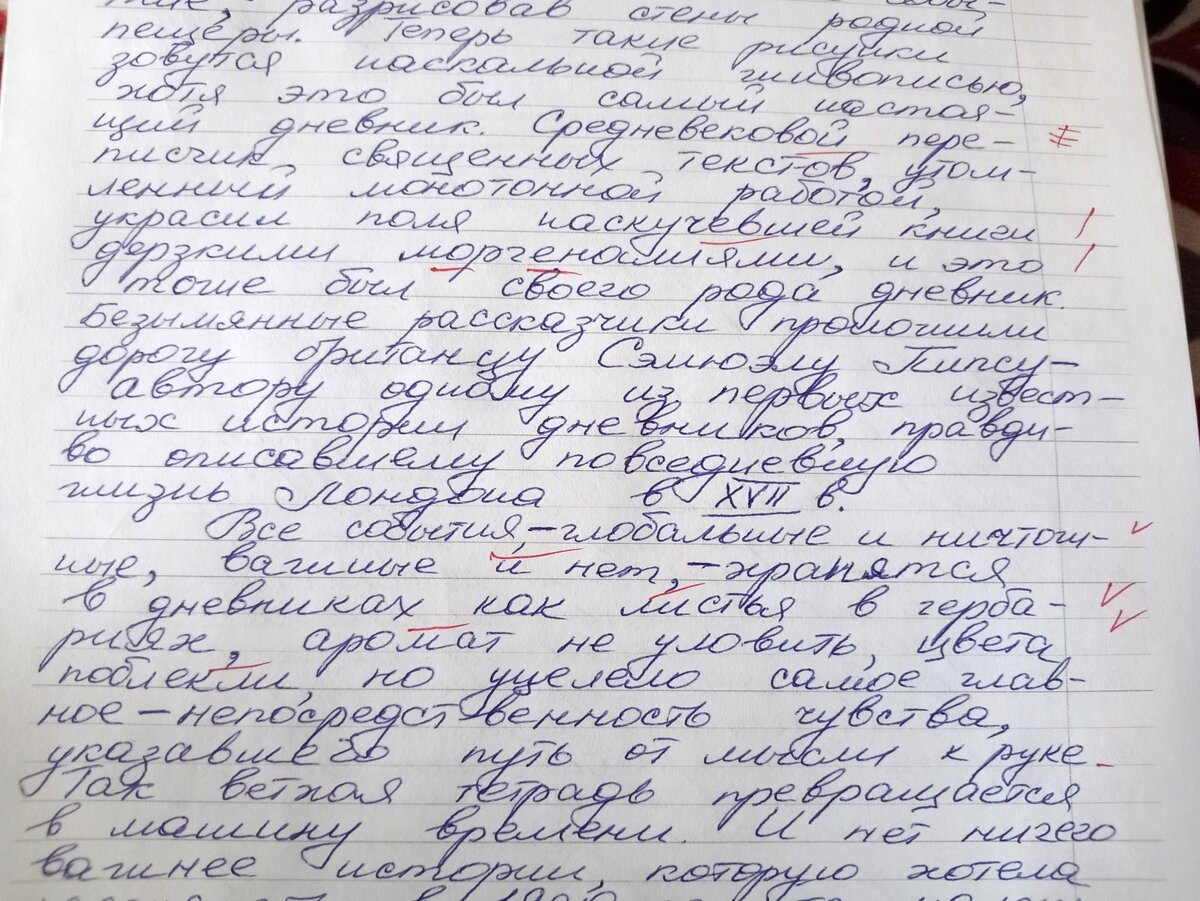 тие, разрисовав стены родной
пещеры. Теперь такие рисунки
зовутся наскальной живописью,
хотя это был самый настоя-
щий дневник. Средневековой пере-
писчик священных текстов, утом-
ленный монотонной работой,
украсил поля наскучевшей книги
дерзкими моргеналиями, и это
тоже был своего рода дневник.
Безымянные рассказчики проложили
дорогу британцу Сэмюэлу Пипсу-
автору одному из первых извест-
ных истории дневников, правди-
во описавшему повседневную
жизнь Лондона в XVII в.
Все события,-глобальные и ничтож-
ные, важные и нет,-хранятся
в дневниках как листья в герба-
риях, аромат не уловить, цвета
поблекли, но уцелело самое глав-
ное-непосредственность чувства,
указавшего путь от мысли к руке.
Так ветхая тетрадь превращается
в машину времени. И нет ничего
важнее истории, которую хотела